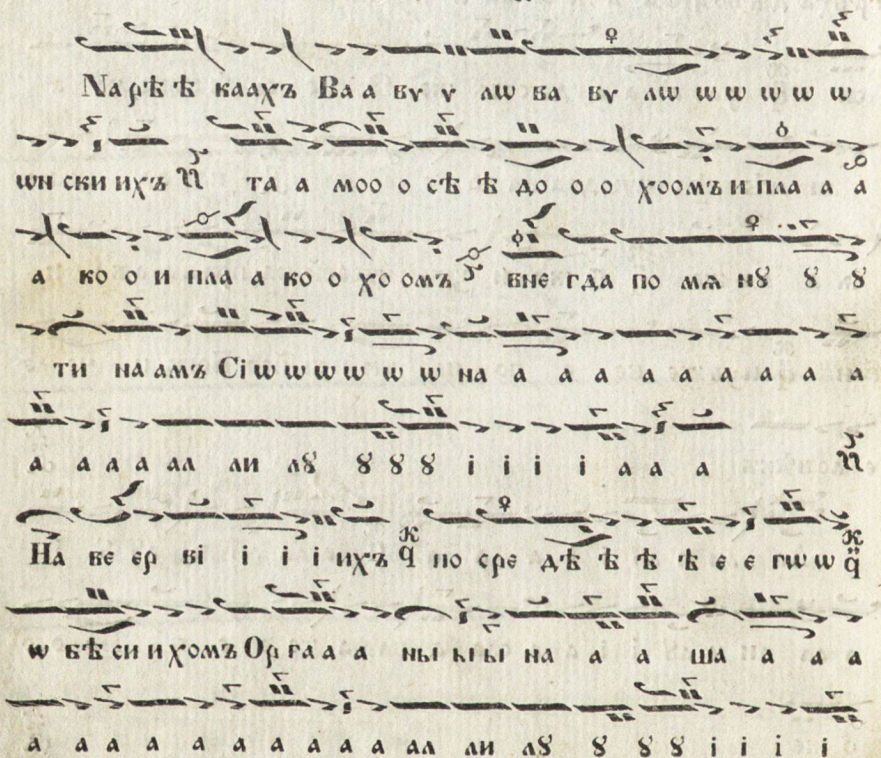 На рѣ ѣ каахъ Ва а вѵ ѵ лѡ ва вѵ лѡ ѡ ѡ ѡ ѡ ѡ
ѡн ски ихъ та а моо о сѣ ѣ до о о хоомъ и пла а а
а ко о и пла а ко о хо омъ вне гда по мѧ нꙋ ꙋ ꙋ
ти на амъ Сі ѡ ѡ ѡ ѡ ѡ ѡ на а а а а а а а а а
а а а а ал ли лꙋ ꙋ ꙋ ꙋ і і і і а а а
На ве ер ві і і і ихъ по сре дѣ ѣ ѣ ѣ е е гѡ ѡ
ѡ бѣ си и хомъ Ор га а а ны ы ы на а а ша а а а
а а а а а а а а а ал ли лꙋ ꙋ ꙋ ꙋ і і і і